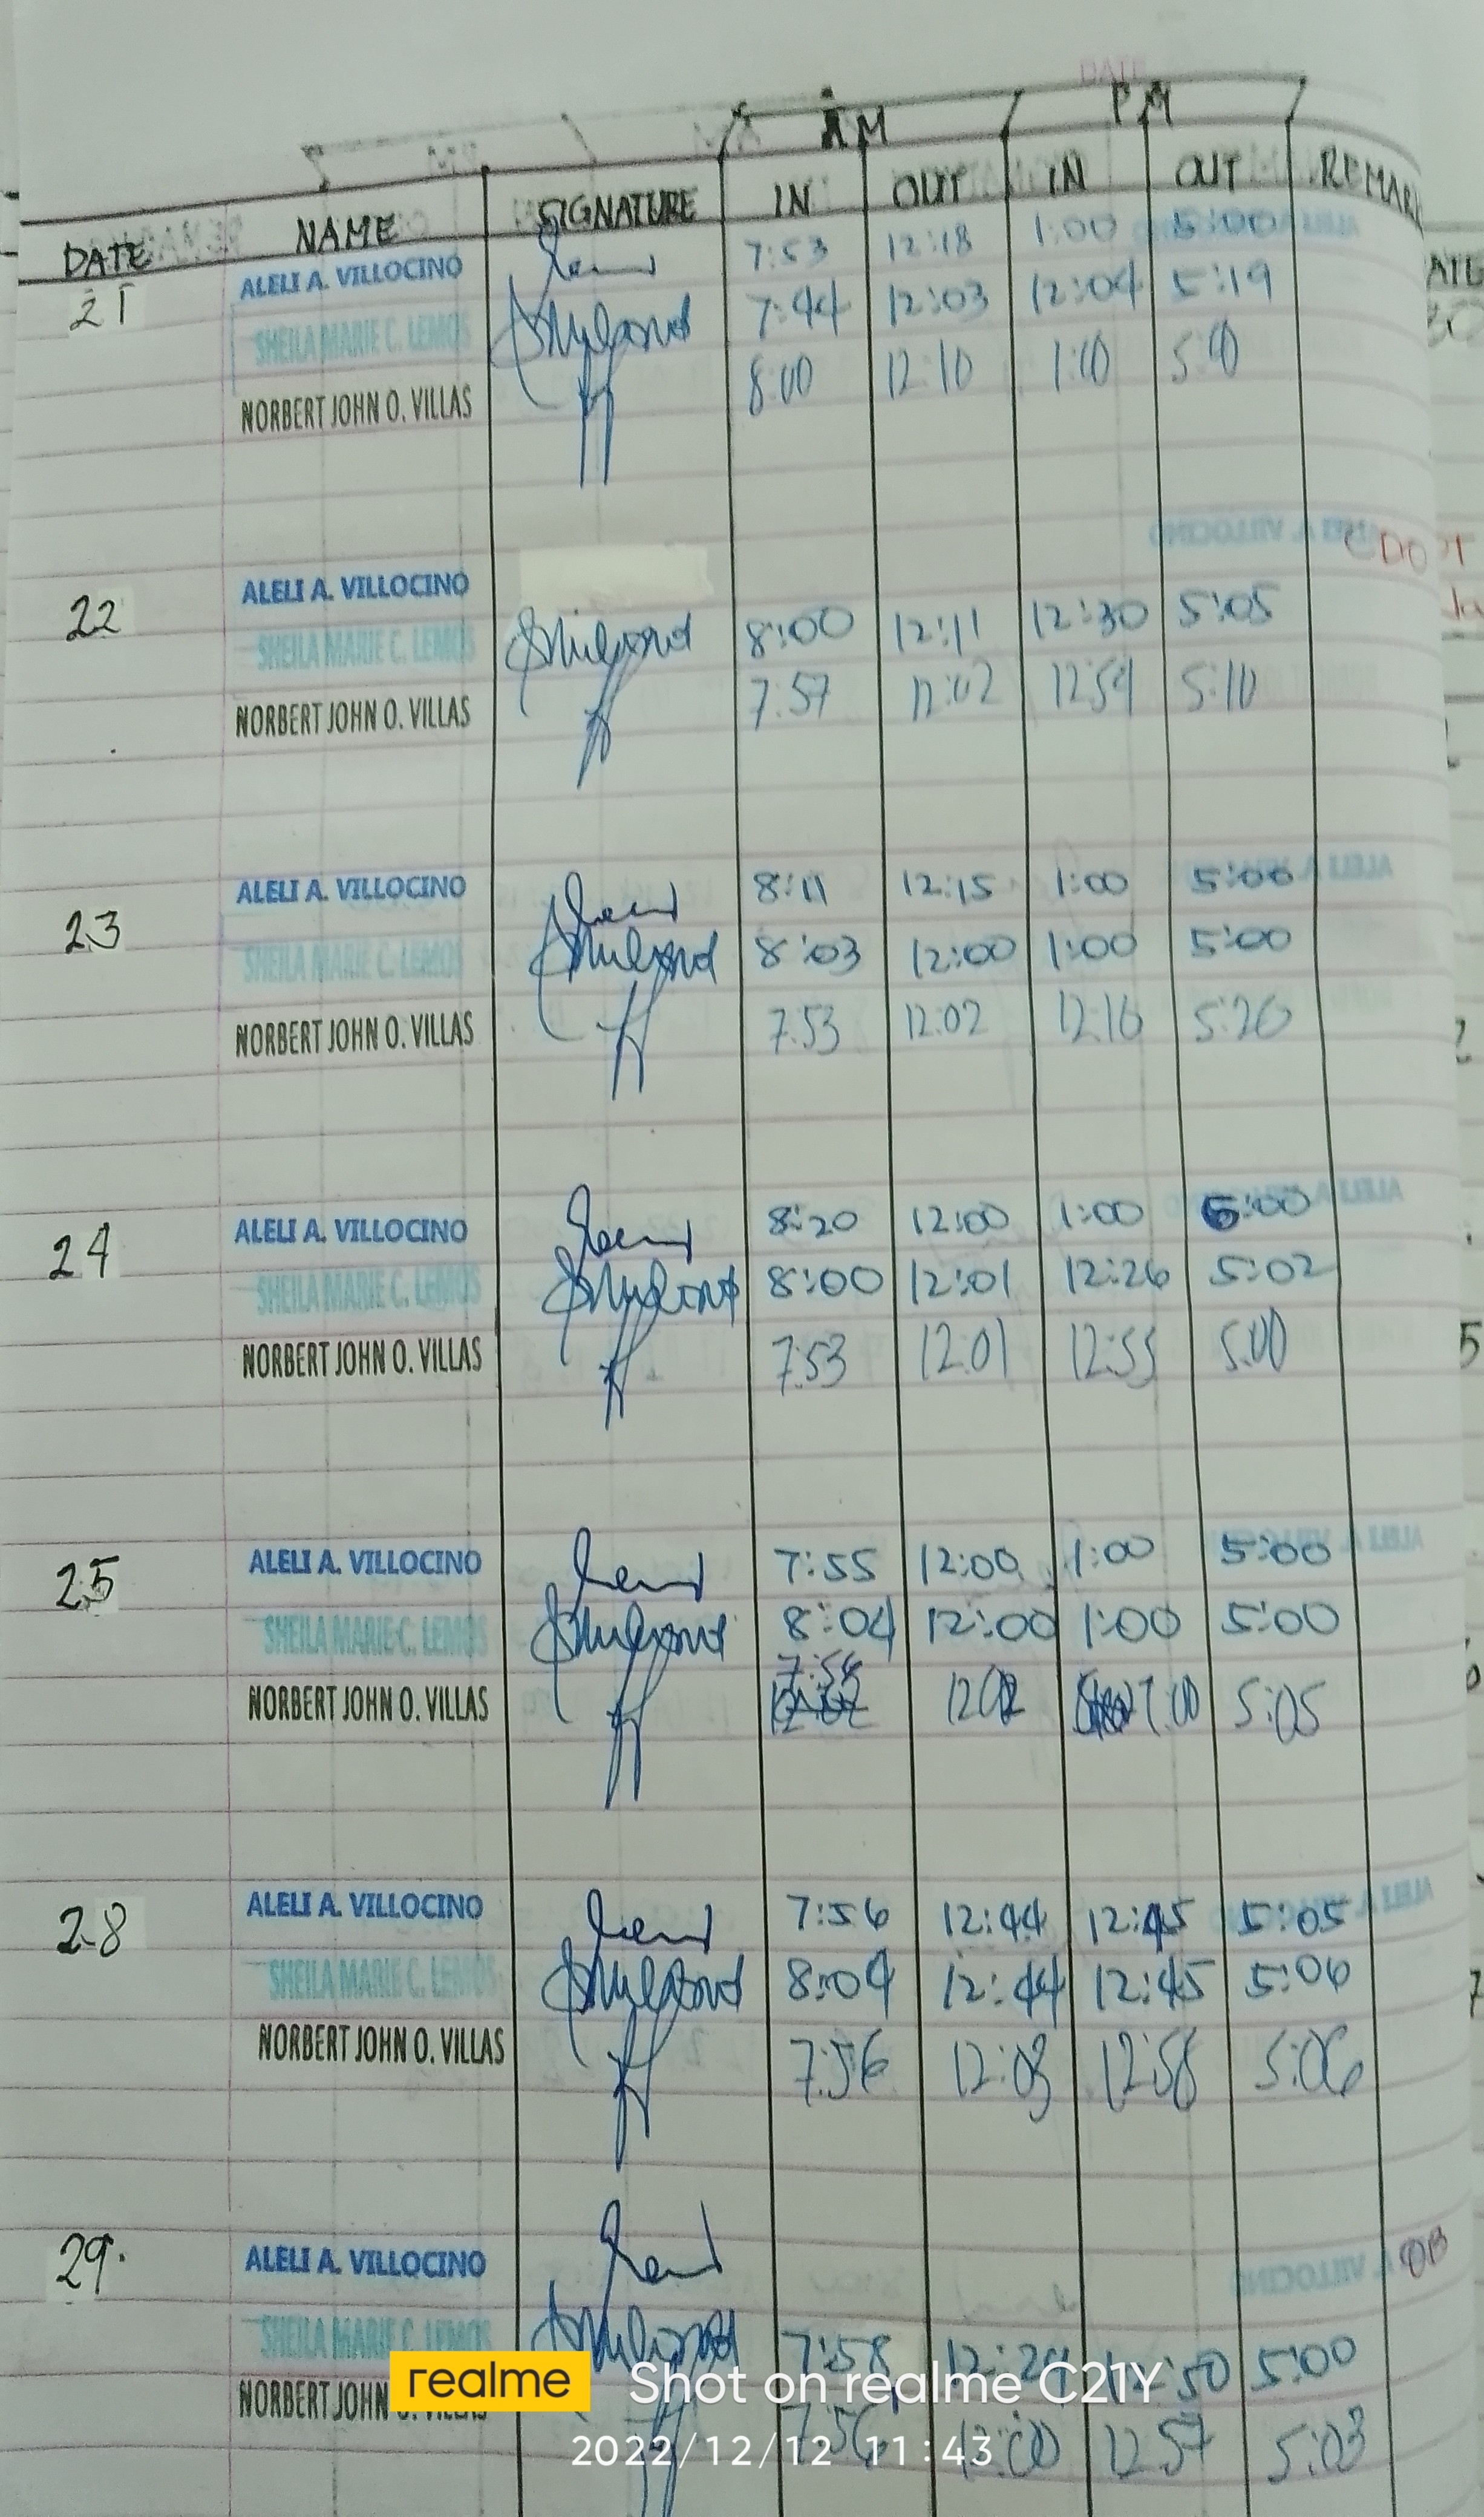 AM PM
DATE NAME SIGNATURE IN OUT IN OUT REMARK
21 ALELI A. VILLOCINO 7:53 12:18 1:00 5:00
SHEILA MARIE C. LEMOS 7:44 12:03 12:04 5:19
NORBERT JOHN O. VILLAS 8:00 12:10 1:00 5:00
22 ALELI A. VILLOCINO
SHEILA MARIE C. LEMOS 8:00 12:11 12:30 5:05
NORBERT JOHN O. VILLAS 7:57 12:02 12:59 5:10
23 ALELI A. VILLOCINO 8:11 12:15 1:00 5:00
SHEILA MARIE C. LEMOS 8:03 12:00 1:00 5:00
NORBERT JOHN O. VILLAS 7:53 12:02 12:16 5:20
24 ALELI A. VILLOCINO 8:20 12:00 1:00 5:00
SHEILA MARIE C. LEMOS 8:00 12:01 12:26 5:02
NORBERT JOHN O. VILLAS 7:53 12:01 12:55 5:00
25 ALELI A. VILLOCINO 7:55 12:00 1:00 5:00
SHEILA MARIE C. LEMOS 8:04 12:00 1:00 5:00
NORBERT JOHN O. VILLAS 7:56 1202 1:00 5:05
28 ALELI A. VILLOCINO 7:56 12:44 12:45 5:05
SHEILA MARIE C. LEMOS 8:04 12:44 12:45 5:06
NORBERT JOHN O. VILLAS 7:56 12:03 12:58 5:06
29. ALELI A. VILLOCINO OB
SHEILA MARIE C. LEMOS 7:58 5:00
NORBERT JOHN 7:56 12:00 12 57 5:03
realme Shot on realme C21Y
2022/12/12 11:43